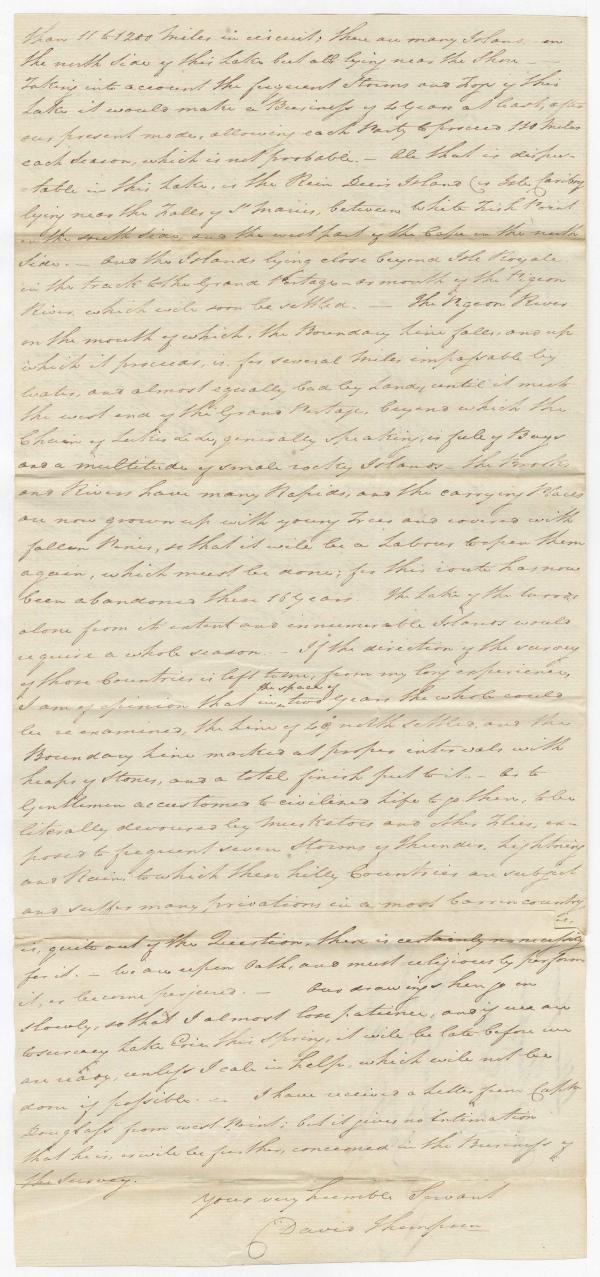 than 11 to 1200 Miles in circuit; there are many Islands on
the north Side of this Lake but all lying near the Shore —
Taking into account the frequent Storms and Fogs of this
Lake it would make a Business of 4 Years at least, after
our present mode, allowing each Party to proceed 110 Miles
each Season, which is not probable. — All that is dispu-
-table in this Lake, is the Rein Deer's Island (or Isle Caribou
lying near the Falls of St Maries, between White Fish Point
on the south Side, and the west part of the Cape on the north
Side. — and the Islands lying close beyond Isle Royale
in the track to the Grand Portage — or mouth of the Pigeon
River, which will soon be settled. — The Pigeon River
on the mouth of which, the Boundary Line falls, and up
which it proceeds, is, for several Miles impassable by
Water, and almost equally bad by Land, until it meets
the west end of the Grand Portage, beyond which the
Chain of Lakes &c &c, generally speaking, is full of Bays
and a multitude of small rocky Islands — the Brooks
and Rivers have many Rapids, and the carrying Places
are now grown up with young Trees and covered with
fallen Pines, so that it will be a Labour to open them
again, which must be done; for this route has now
been abandoned these 16 Years. The Lake of the Woods
alone from its extent and innumerable Islands would
require a whole season. — If the direction of the survey
of those Countries is left to me, from my long experience,
I am of opinion that in the space of two Years the whole could
be re examined, the Line of 49 north settled, and the
Boundary Line marked at proper intervals with
heaps of Stones, and a total finish put to it. — As to
Gentlemen accustomed to civilized Life to go there, to be
literally devoured by Musketoes and other Flies, ex-
posed to frequent seven Storms of Thunder, Lightning
and Rain, to which these hilly Countries are subject
and suffer many privations in a most barren country
is,
is, quite out of the Question, there is certainly no necessity
for it. — We are upon Oath, and must religiously perform
it, or become perjured. — Our drawings here go on
slowly, so that I almost lose patience, and if we are
to survey Lake Erie this Spring, it will be late before we
are ready, unless I call in help, which will not be
done if possible. — I have received a Letter from Captn
Douglass from west Point; but it gives no Intimation
that he is, or will be further, concerned in the Business of
the survey.
Your very humble Servant
David Thompson